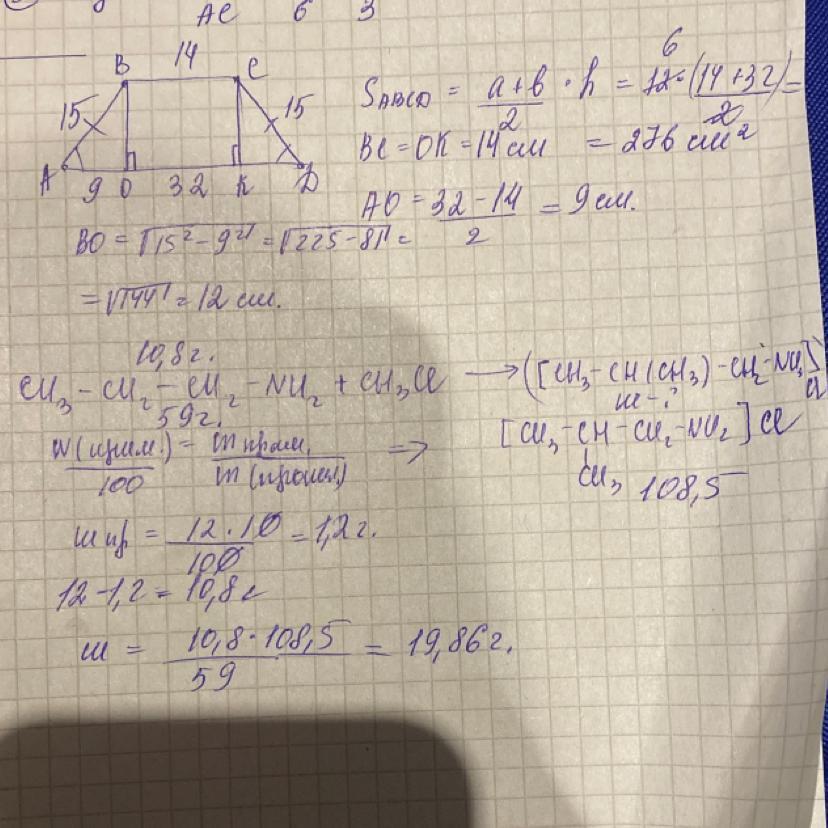 AC 6 3
14
B C
15 15
A 9 O 32 K D
S_ABCD = a+b/2 · h = 12·(14+32)/2 =
6
BC = OK = 14 см = 276 см²
AO = 32-14/2 = 9 см.
BO = √15²-9² = √225-81 =
= √144 = 12 см.
10,8 г.
CH₃-CH₂-CH₂-NH₂ + CH₃Cl → ([CH₃-CH(CH₃)-CH₂-NH₂]Cl
59 г.
m-?
[CH₃-CH-CH₂-NH₂]Cl
CH₃ 108,5
W(прим.)/100 = m прим./m() ⇒
m пр = 12·10/100 = 1,2 г.
12-1,2 = 10,8 г
m = 10,8·108,5/59 = 19,86 г.